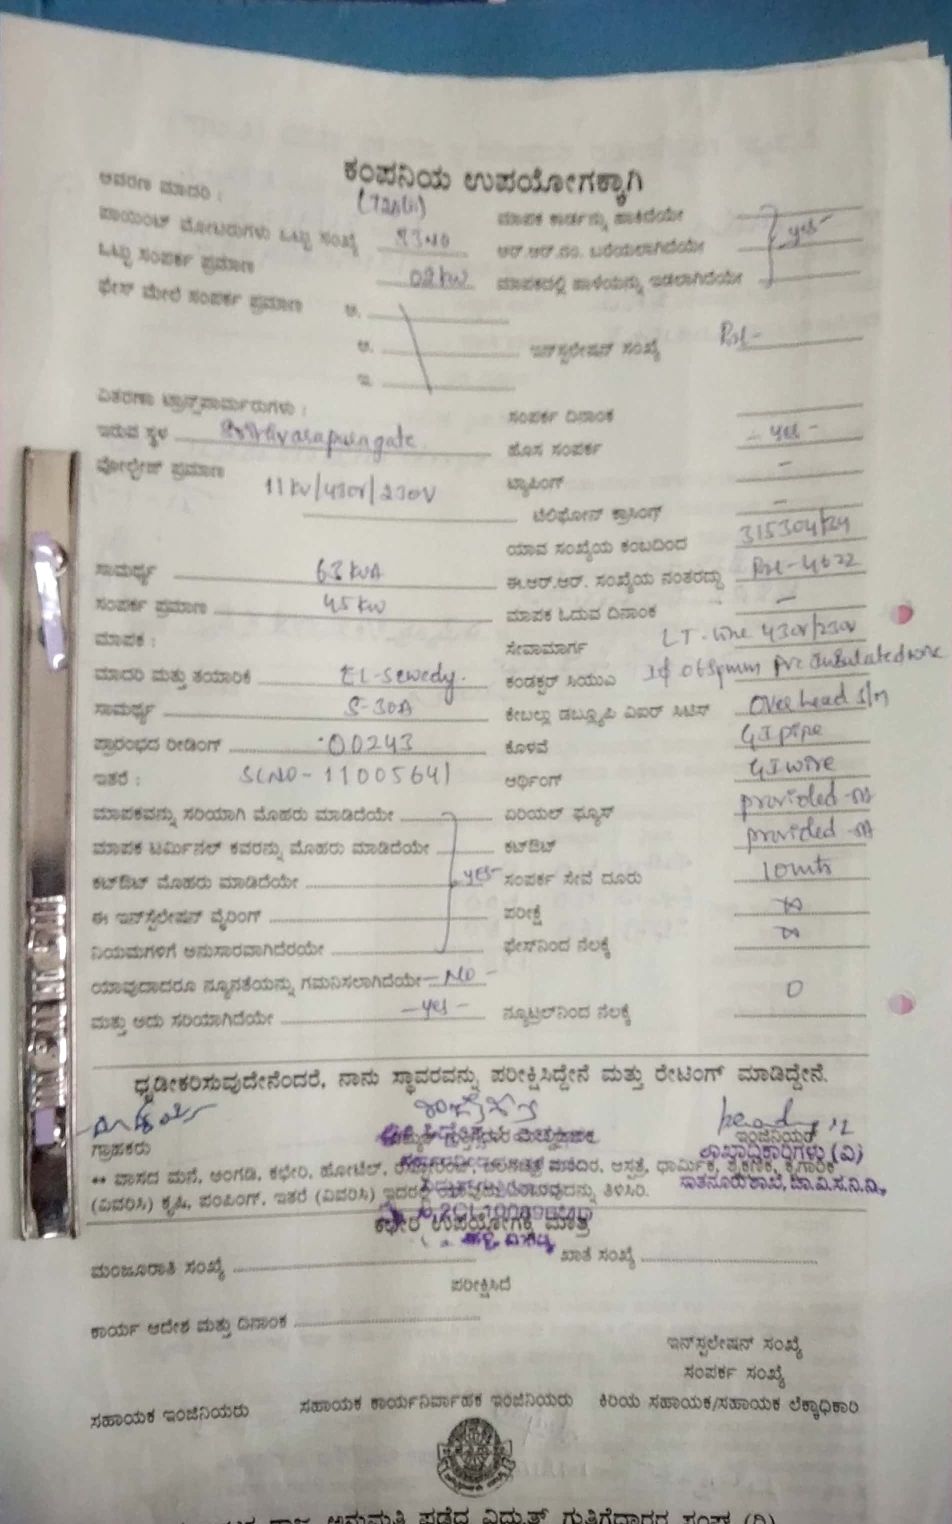 ಕಂಪನಿಯ ಉಪಯೋಗಕ್ಕಾಗಿ
ಆವರಣ ಮಾದರಿ :
ಮಾಪಕ ಕಾರ್ಡನ್ನು ಹಾಕಿದೆಯೇ
ಪಾಯಿಂಟ್ ಮೋಟರುಗಳು ಒಟ್ಟು ಸಂಖ್ಯೆ
ಆರ್.ಆರ್.ನಂ. ಬರೆಯಲಾಗಿದೆಯೇ yes
ಒಟ್ಟು ಸಂಪರ್ಕ ಪ್ರಮಾಣ 02KW
ಮಾಪಕದಲ್ಲಿ ಹಾಳೆಯನ್ನು ಇಡಲಾಗಿದೆಯೇ
ಫೇಸ್ ಮೇಲೆ ಸಂಪರ್ಕ ಪ್ರಮಾಣ ಅ.
ಆ. ಇನ್‌ಸ್ಟಲೇಷನ್ ಸಂಖ್ಯೆ
ಇ.
ವಿತರಣಾ ಟ್ರಾನ್ಸ್‌ಫಾರ್ಮರುಗಳು :
ಸಂಪರ್ಕ ದಿನಾಂಕ
ಇರುವ ಸ್ಥಳ
ಹೊಸ ಸಂಪರ್ಕ - yes -
ವೋಲ್ಟೇಜ್ ಪ್ರಮಾಣ 11KV/430V/230V
ಟ್ಯಾಪಿಂಗ್ -
ಟೆಲಿಫೋನ್ ಕ್ರಾಸಿಂಗ್ -
ಯಾವ ಸಂಖ್ಯೆಯ ಕಂಬದಿಂದ
ಸಾಮರ್ಥ್ಯ 63 KVA
ಈ.ಆರ್.ಆರ್. ಸಂಖ್ಯೆಯ ನಂತರದ್ದು
ಸಂಪರ್ಕ ಪ್ರಮಾಣ 45 KW
ಮಾಪಕ ಓದುವ ದಿನಾಂಕ -
ಮಾಪಕ :
ಸೇವಾಮಾರ್ಗ LT-line 430V/230V
ಮಾದರಿ ಮತ್ತು ತಯಾರಿಕೆ EL-Sewedy.
ಕಂಡಕ್ಟರ್ ಸಿಯುಎ PVC Insulated wire
ಸಾಮರ್ಥ್ಯ 5-30A
ಕೇಬಲ್ಲಾ ಡಬ್ಲ್ಯೂಪಿ ವಿಐರ್ ಸಿಟಿಸ್ Over head S/M
ಪ್ರಾರಂಭದ ರೀಡಿಂಗ್ 00243
ಕೊಳವೆ GI pipe
ಇತರೆ : SLNO-11005641
ಆರ್ಥಿಂಗ್ GI wire
ಮಾಪಕವನ್ನು ಸರಿಯಾಗಿ ಮೊಹರು ಮಾಡಿದೆಯೇ
ಏರಿಯಲ್ ಫ್ಯೂಸ್ provided
ಮಾಪಕ ಟರ್ಮಿನಲ್ ಕವರನ್ನು ಮೊಹರು ಮಾಡಿದೆಯೇ
ಕಟ್‌ಔಟ್ provided
ಕಟ್‌ಔಟ್ ಮೊಹರು ಮಾಡಿದೆಯೇ yes
ಸಂಪರ್ಕ ಸೇವೆ ದೂರು 10mts
ಈ ಇನ್‌ಸ್ಟೆಲೇಷನ್ ವೈರಿಂಗ್
ಪರೀಕ್ಷೆ
ನಿಯಮಗಳಿಗೆ ಅನುಸಾರವಾಗಿದೆರಯೇ
ಫೇಸ್‌ನಿಂದ ನೆಲಕ್ಕೆ
ಯಾವುದಾದರೂ ನ್ಯೂನತೆಯನ್ನು ಗಮನಿಸಲಾಗಿದೆಯೇ - NO -
ಮತ್ತು ಅದು ಸರಿಯಾಗಿದೆಯೇ - yes -
ನ್ಯೂಟ್ರಲ್‌ನಿಂದ ನೆಲಕ್ಕೆ 0
ಧೃಡೀಕರಿಸುವುದೇನೆಂದರೆ, ನಾನು ಸ್ಥಾವರವನ್ನು ಪರೀಕ್ಷಿಸಿದ್ದೇನೆ ಮತ್ತು ರೇಟಿಂಗ್ ಮಾಡಿದ್ದೇನೆ.
ಗ್ರಾಹಕರು
ಇಂಜಿನಿಯರ್
ಶಾಖಾಧಿಕಾರಿಗಳು (ವಿ)
** ವಾಸದ ಮನೆ, ಅಂಗಡಿ, ಕಛೇರಿ, ಹೋಟೆಲ್, ಮಂದಿರ, ಆಸ್ಪತ್ರೆ, ಧಾರ್ಮಿಕ, ಶೈಕ್ಷಣಿಕ, ಕೈಗಾರಿಕೆ
ಸಾತನೂರು ಶಾಖೆ, ಚಾ.ವಿ.ಸ.ನಿ.ನಿ.,
(ವಿವರಿಸಿ) ಕೃಷಿ, ಪಂಪಿಂಗ್, ಇತರೆ (ವಿವರಿಸಿ) ಇದರಲ್ಲಿ ತಿಳಿಸಿರಿ.
ಕಛೇರಿ ಉಪಯೋಗಕ್ಕೆ ಮಾತ್ರ
ಮಂಜೂರಾತಿ ಸಂಖ್ಯೆ
ಖಾತೆ ಸಂಖ್ಯೆ
ಪರೀಕ್ಷಿಸಿದೆ
ಕಾರ್ಯ ಆದೇಶ ಮತ್ತು ದಿನಾಂಕ
ಇನ್‌ಸ್ಟಲೇಷನ್ ಸಂಖ್ಯೆ
ಸಂಪರ್ಕ ಸಂಖ್ಯೆ
ಸಹಾಯಕ ಇಂಜಿನಿಯರು ಸಹಾಯಕ ಕಾರ್ಯನಿರ್ವಾಹಕ ಇಂಜಿನಿಯರು ಕಿರಿಯ ಸಹಾಯಕ/ಸಹಾಯಕ ಲೆಕ್ಕಾಧಿಕಾರಿ
ಅನುಮತಿ ಪಡೆದ ವಿದ್ಯುತ್ ಗುತ್ತಿಗೆದಾರರ ಸಂಘ (ರಿ)